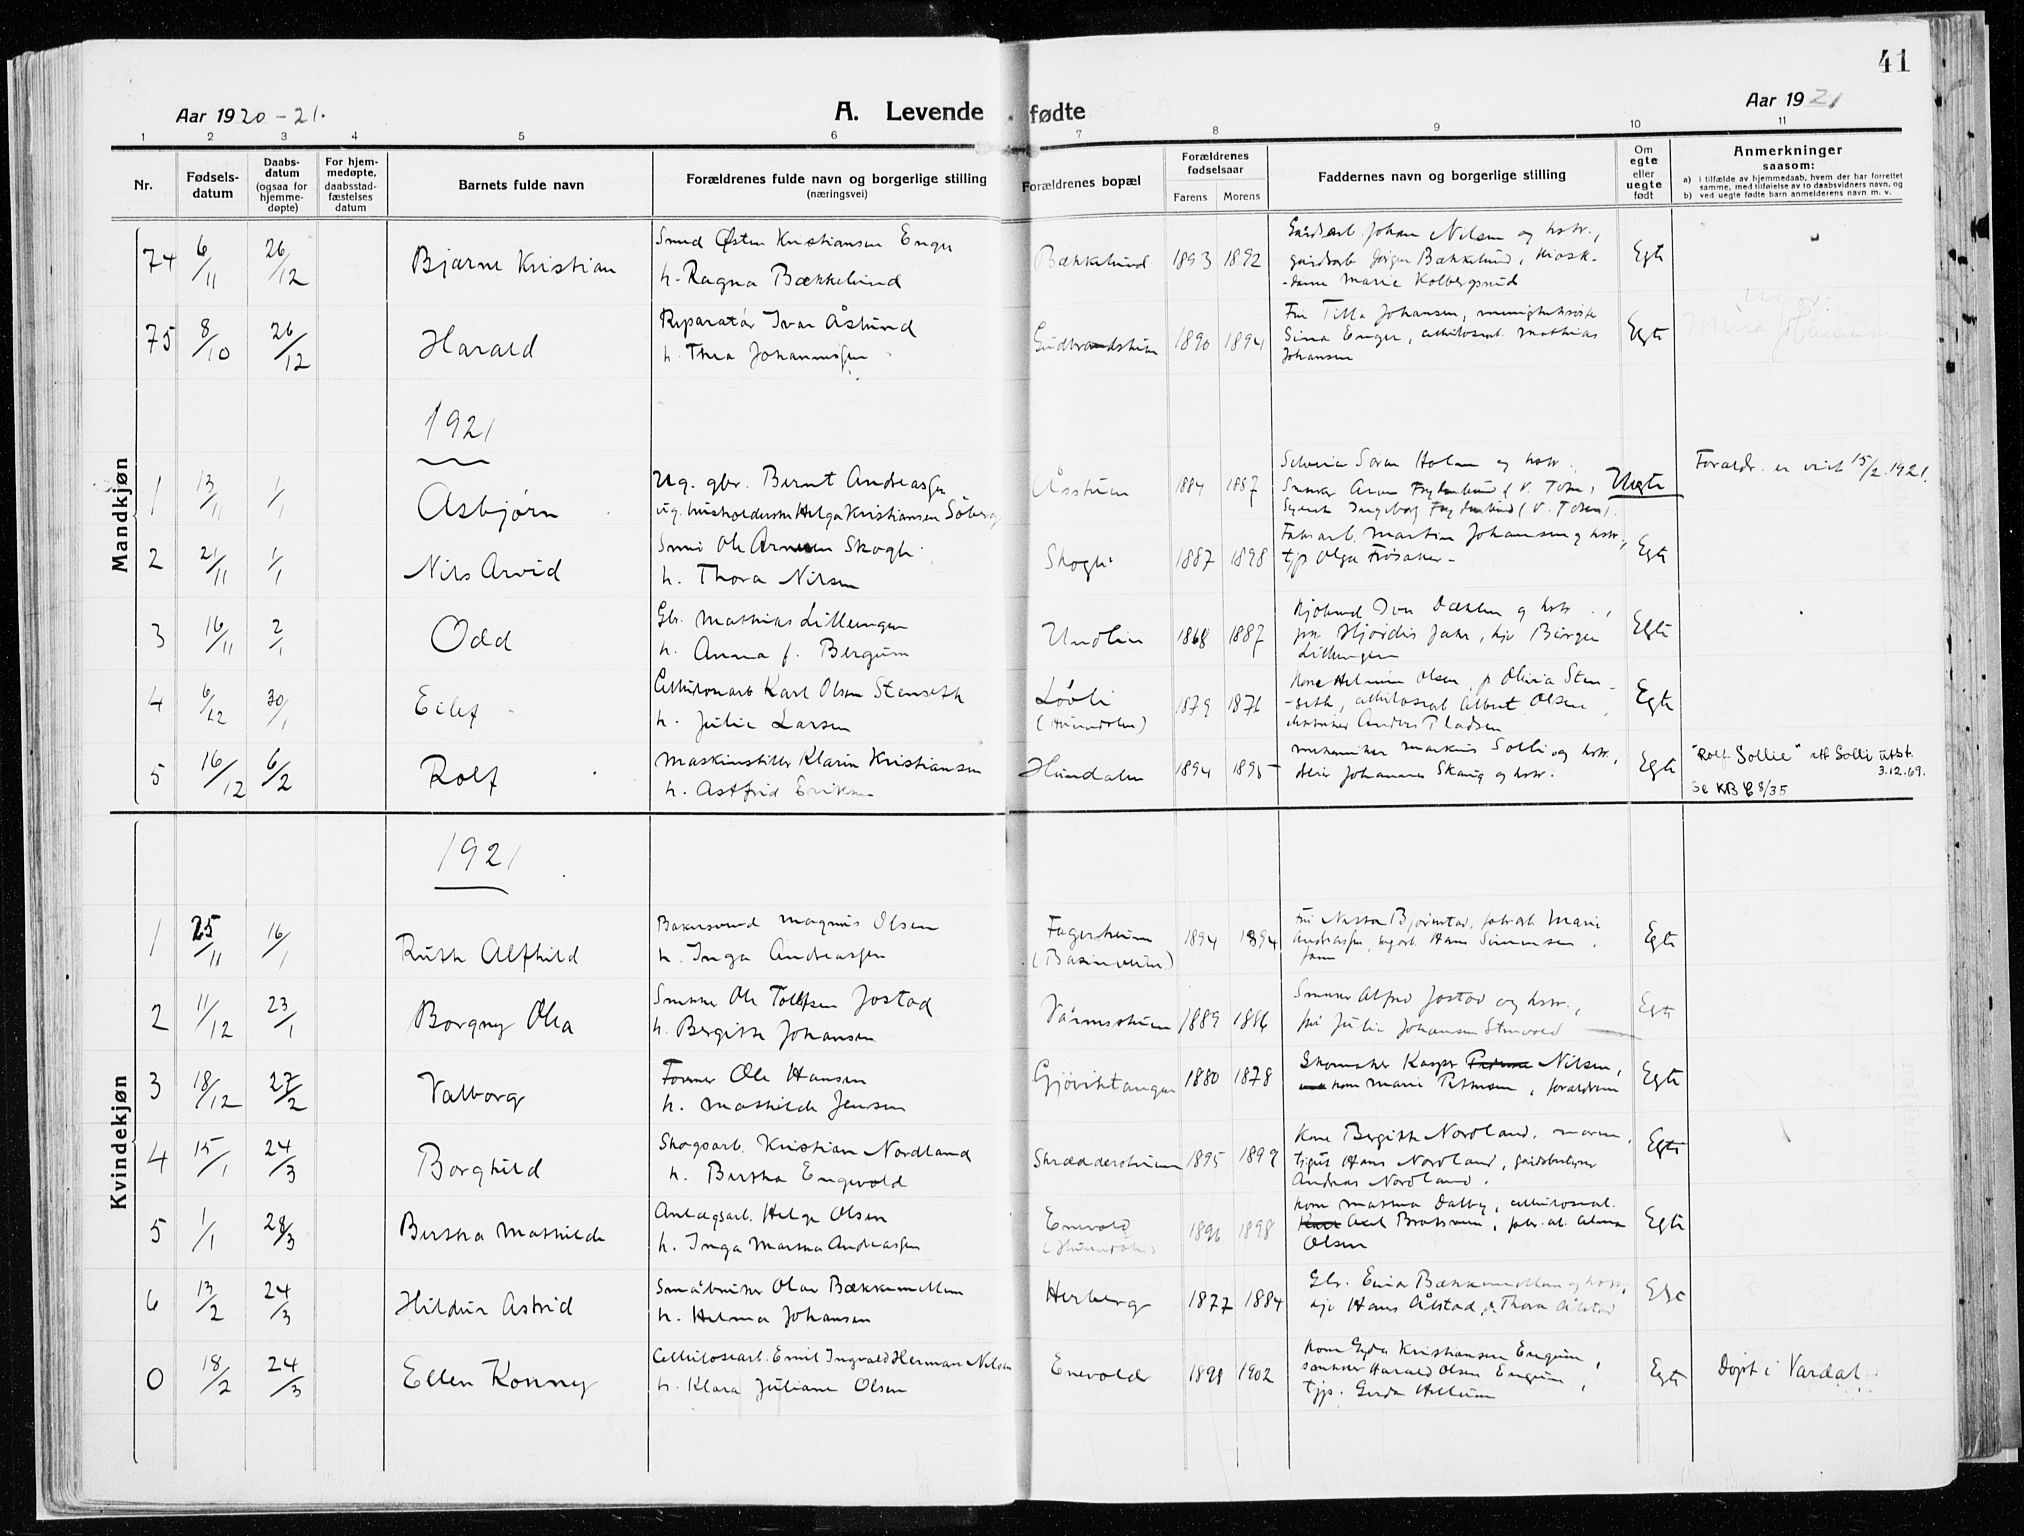 41
Aar 1920 - 21.
A. Levende fødte
Aar 1921
1 2 3 4 5 6 7 8 9 10 11
Nr.
Fødsels-
datum
Daabs-
datum
(ogsaa for
hjemme-
døpte)
For hjem-
medøpte,
daabsstad-
fæstelses
datum
Barnets fulde navn
Forældrenes fulde navn og borgerlige stilling
(næringsvei)
Forældrenes bopæl
Forældrenes
fødselsaar
Farens Morens
Faddernes navn og borgerlige stilling
Om
egte
eller
uegte
født
Anmerkninger
saasom:
a) i tilfælde av hjemmedaab, hvem der har forrettet
samme, med tilføielse av to daabsvidners navn, og
b) ved uegte fødte barn anmelderens navn m. v.
Mandkjøn
74 6/11 26/12 Bjarne Kristian
Smed Østen Kristiansen Enger
h. Ragna Bækkelund
Bækkelund 1893 1892
Gårdsarb. Johan Nilsen og hstr.,
gårdsarb Jørgen Bækkelund, kiosk-
-dame Marie Kolbergsrud
Egte
75 8/10 26/12 Harald
Reparatør Ivar Åslund
h. Thea Johannesen
Gudbrandsheim 1890 1894
Fru Tilla Johansen,
Sina Enger, cellulosearb. Mathias
Johansen
Egte
1921
1 13/11 1/1 Asbjørn
Ug. gbr. Bernt Andreasen
ug. husholderske Helga Kristiansen Söberg
Åssheim 1884 1887
Søren Holm og hstr.
Snekker Aron Frydenlund (V. Toten)
Syerske Ingeborg Frydenlund (V. Toten).
Uegte
Forældr. er viet 15/2 1921.
2 21/11 1/1 Nils Arvid
Smed Ole Arnesen Skogli
h. Thora Nilsen
Skogli 1887 1898
Fabr.arb. Martin Johansen og hstr.,
tjp Olga Frösaker -
Egte
3 16/11 2/1 Odd
Gbr. Mathias Lilleengen
h. Anna f. Bergum
Undlien 1868 1887
Iver Dæhlen og hstr.,
pk Hjördis Jahr, kjv Birger
Lillengen
Egte
4 6/12 30/1 Eilef
Cellulosearb Karl Olsen Stenseth
h. Julie Larsen
Lövli
(Hunndalen)
1879 1876
Kone Helmine Olsen, p Olivia Sten-
-seth, cellulosearb Albert Olsen,
Anders Pladsen
Egte
5 16/12 6/2 Rolf
Maskinstiller Klarin Kristiansen
h. Astfrid Eriksen
Hundalen 1894 1895
mekaniker Markus Solli og hstr.,
Johannes Skaug og hstr.
Egte
"Rolf Sollie" att Solli utst.
3.12.69.
Se KB C 8/35
Kvindekjøn
1921
1 25/11 16/1 Ruth Alfhild
Bakersvend Magnus Olsen
h. Inga Andreasen
Fagerheim
1894 1894
Fru Bjørnstad, fabr.arb Marie
Andreasen, Hans Simensen,
Egte
2 11/12 23/1 Borgny Olea
Snekker Ole Tollefsen Jostad
h. Bergitte Johansen
Värmsheim 1889 1886
Snekker Alfred Jostad og hstr.,
frk Julie Johansen Stenvold
Egte
3 18/12 27/2 Valborg
Former Ole Hansen
h. Mathilde Jensen
Gjøviktangen 1880 1878
Skomaker Kasper Nilsen,
kone Marie Pettersen, forældrene
Egte
4 15/1 24/3 Borghild
Skogsarb. Kristian Nordland
h. Bertha Engevold
Skræddersheim 1895 1899
Kone Bergitte Nordland, moren,
tjgut Hans Nordland, gårdsbestyrer
Andreas Nordland.
Egte
5 1/1 28/3 Bertha Mathilde
Anlægsarb. Helge Olsen
h. Inga Martha Andreasen
Enevold
(Hunndalen)
1896 1898
Kone Mathea Dalby, cellulosearb.
Karl Axel Bratsveen, fabr.arb. Alma
Olsen
Egte
6 13/2 24/3 Hildur Astrid
Småbruker Olav Bækkemellem
h. Helma Johansen
Herberg 1877 1884
Gbr. Einar Bækkemellem og hstr.,
kjv Hans Ålstad, p. Thora Ålstad
Egte
0 18/2 24/3 Ellen Konny
Cellulosearb. Emil Ingvald Herman Nilsen
h. Klara Juliane Olsen
Enevold 1898 1902
Kone Gyda Kristiansen Engum,
snekker Harald Olsen Engum,
tjp. Gerda Hellum
Egte
Døpt i Vardal